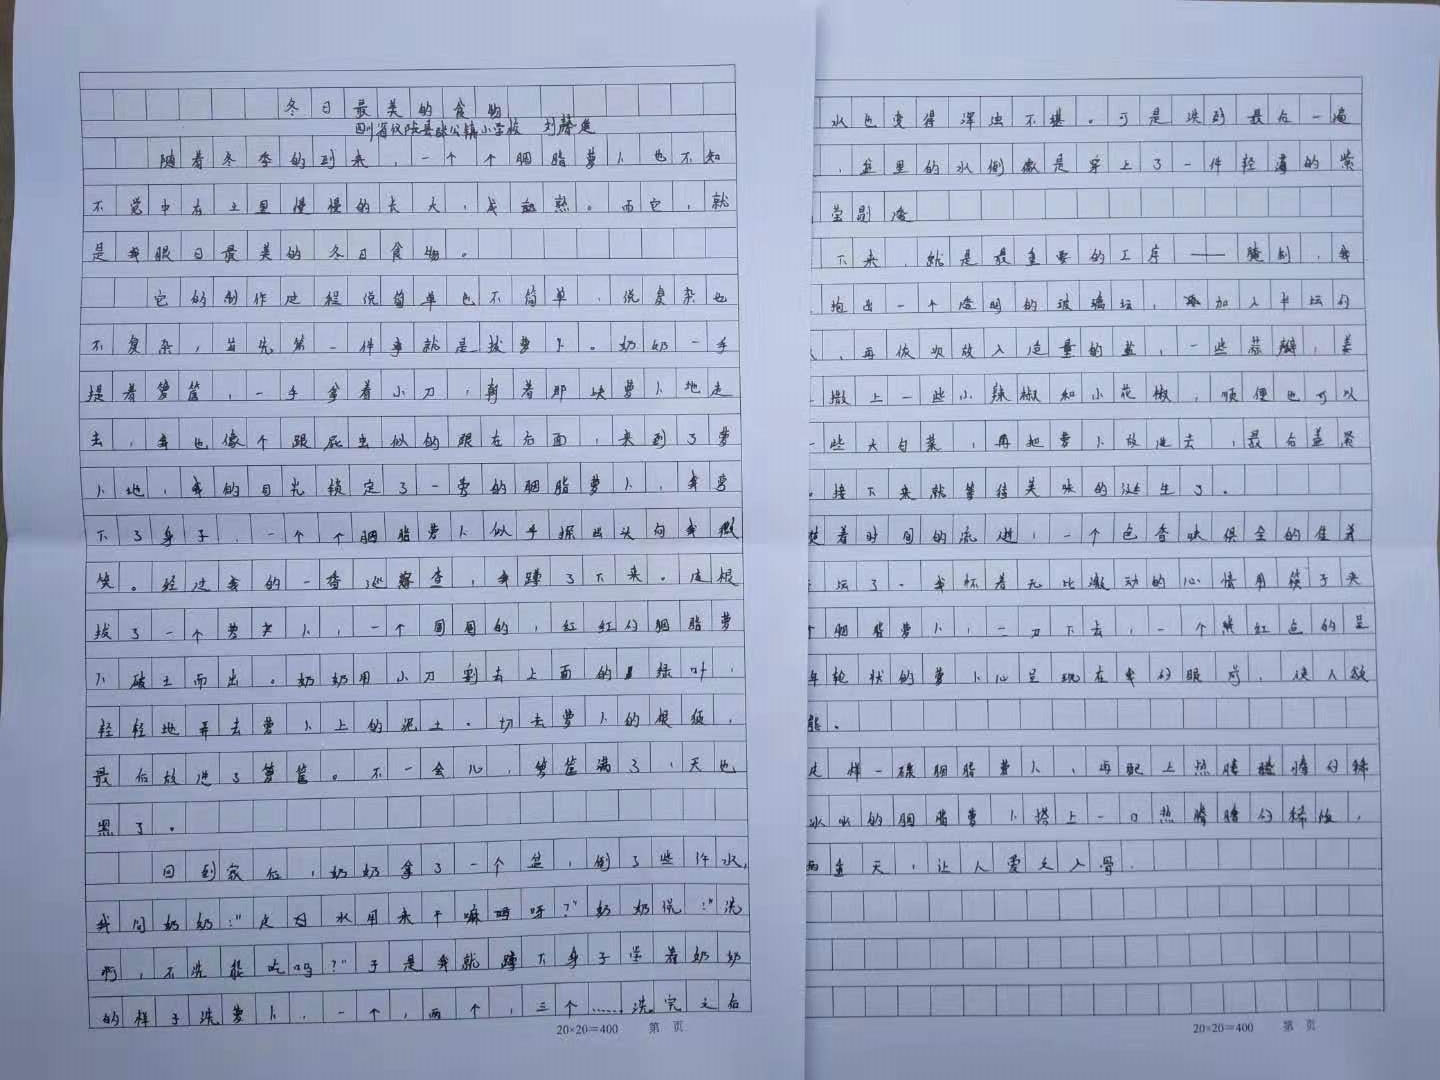 冬日最美的食物
四川省仪陇县张公镇小学校 刘馨
随着冬季的到来，一个个胭脂萝卜也不知
不觉中在土里慢慢的长大，成熟。而它，就
是我眼日最美的冬日食物。
它的制作过程说简单也不简单，说复杂也
不复杂，首先第一件事就是拔萝卜。奶奶一手
提着箩筐，一手拿着小刀，朝着那块萝卜地走
去，我也像个跟屁虫似的跟在后面，来到了萝
卜地，我的目光锁定了一旁的胭脂萝卜，我弯
下了身子，一个个胭脂萝卜似乎探出头向我微
笑。经过我的一番巡察查，我蹲了下来。连根
拔了一个萝卜，一个圆圆的，红红的胭脂萝
卜破土而出。奶奶用小刀割去上面的绿叶，
轻轻地弄去萝卜上的泥土。切去萝卜的根须，
最后放进了箩筐。不一会儿，箩筐满了，天也
黑了。
回到家后，奶奶拿了一个盆，倒了些许水，
我问奶奶："这水用来干嘛呀？"奶奶说："洗
啊，不洗能吃吗？"于是我就蹲下身子学着奶奶
的样子洗萝卜，一个，两个，三个……洗完之后
水也变得浑浊不堪。可是洗到最后一遍
，盆里的水倒像是穿上了一件轻薄的紫
莹剔透
下来，就是最重要的工序——腌制，我
抱出一个透明的玻璃坛，加入半坛的
，再依次放入适量的盐，一些蒜瓣，姜
撒上一些小辣椒和小花椒，顺便也可以
一些大白菜，再把萝卜放进去，最后盖紧
。接下来就等待美味的诞生了。
随着时间的流逝，一个色香味俱全的佳肴
坛了。我怀着无比激动的心情用筷子夹
个胭脂萝卜，一刀下去，一个映红色的呈
年轮状的萝卜心呈现在我的眼前，使人欲
能。
这样一碟胭脂萝卜，再配上热腾腾的稀
冰冰的胭脂萝卜搭上一口热腾腾的稀饭，
两重天，让人爱之入骨.
20×20＝400 第 页
20×20＝400 第 页